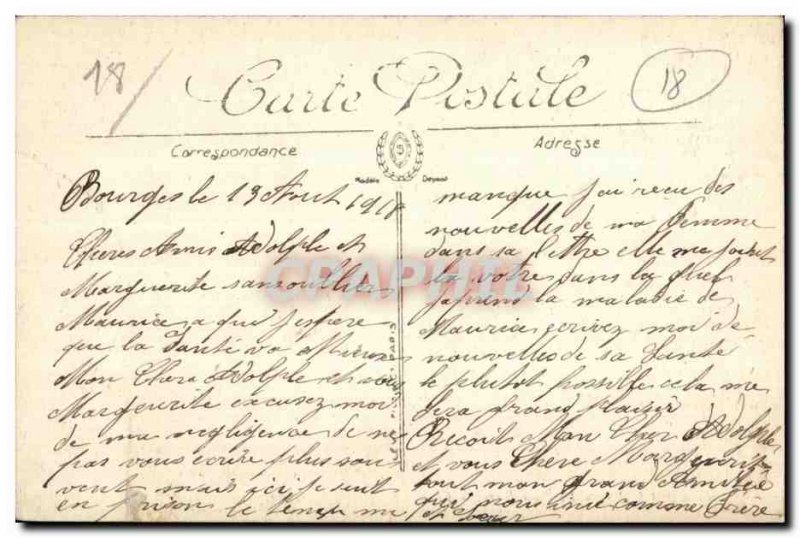 18
18
Carte Postale
Correspondance
Adresse
Modèle Déposé
Bourges le 13 Aout 1918
Cheres Amis Adolphe et
Marguerite sans oublier
Maurice a qui j'espere
que la Santé va Mieux
Mon Cher Adolphe et vous
Marguerite excusez moi
de ma negligence de ne
pas vous ecrire plus sou
vent mais ici
en prison le temps me
manque j'ai recu des
nouvelles de ma Femme
dans sa lettre elle me joint
la votre dans la quel
j'aprens la maladie de
Maurice ecrivez moi de
nouvelles de sa Santé
le plutot possible cela me
fera grand plaisir
Recoit Mon Cher Adolphe
et vous Chere Marguerite
tout mon grand Amitié
qui nous unit comme Frère
et Soeur
CPAPHIL